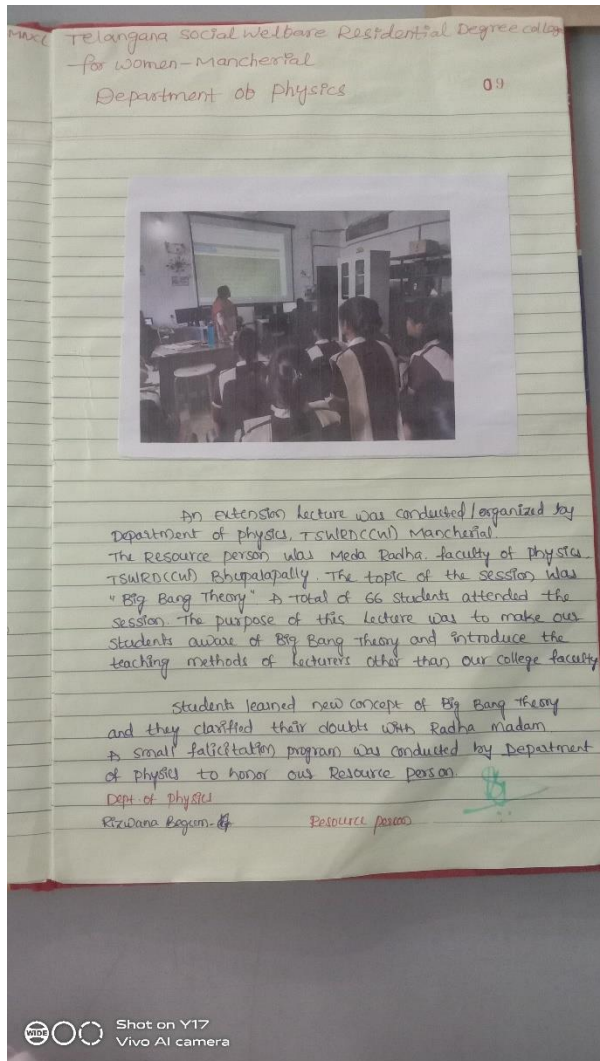 MNCL Telangana Social Welbare Residential Degree colleg
for Women-Mancherial
Department ob physics
09
An extension Lecture was conducted/organized by
Department of physics, TSWRDC(W) Mancherial.
The Resource person was Meda Radha. faculty of physics,
TSWRDC(W) Bhupalapally. The topic of the session was
"Big Bang Theory" A Total of 66 Students attended the
session. The purpose of this Lecture was to make our
students aware of Big Bang Theory and introduce the
teaching methods of Lecturers other than our college faculty
Students learned new concept of Big Bang Theory
and they clarified their doubts with Radha madam
A small falicitation program was conducted by Department
of physics to honor our Resource person.
Dept of physics
Rizwana Begum
Resource person
WIDE
Shot on Y17
Vivo AI camera